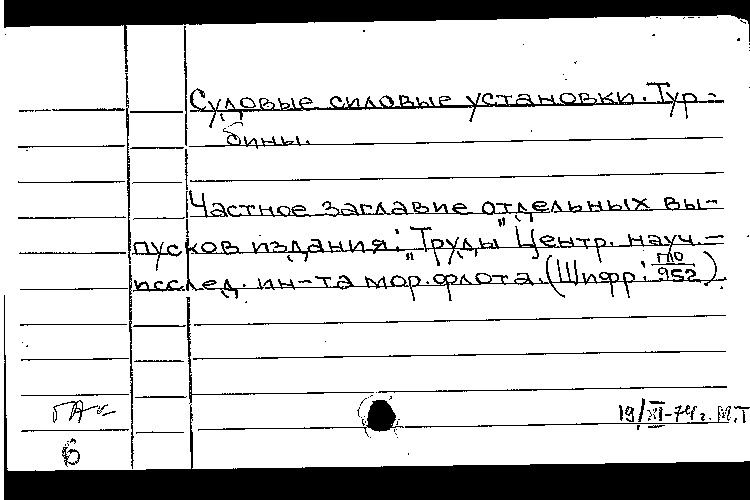 Судовые силовые установки. Тур=
бины.
Частное заглавие отдельных вы-
пусков издания: „Труды" Центр. науч.=
исслед. ин-та мор. флота. (Шифр: ПО/952)
19/XI-74 г. М.Т
6